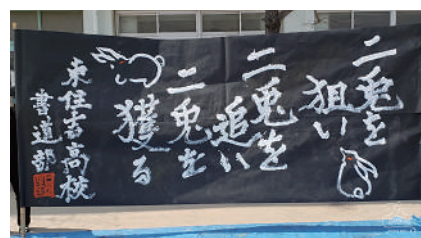 二兎を
狙い
二兎を
追い
二兎を
獲る
東住吉高校
書道部